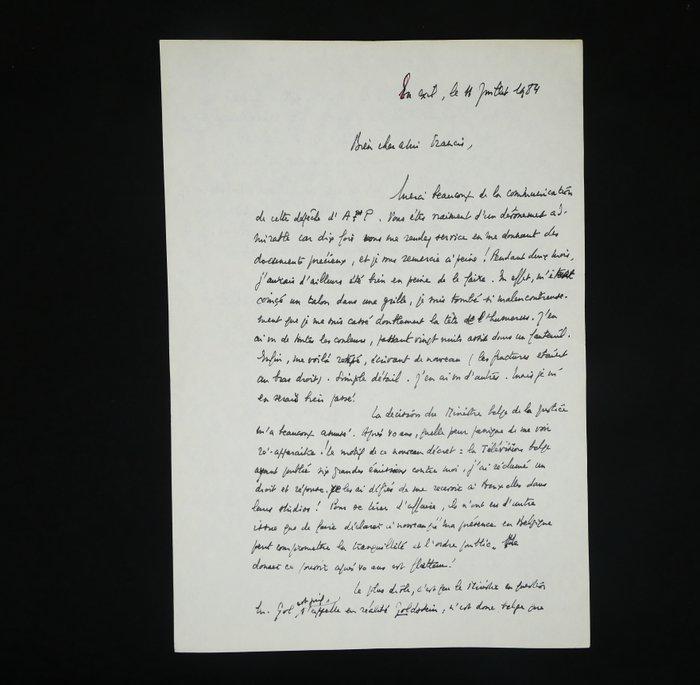 En exil, le 11 Juillet 1984
Bien cher ami Francis,
Merci beaucoup de la communication
de cette dépêche d'AFP. Vous êtes vraiment d'un dévouement ad-
mirable car dix fois vous me rendez service en me donnant des
documents précieux, et je vous remercie à peine ! Pendant deux mois,
j'aurais d'ailleurs été bien en peine de le faire. En effet, m'étant
coincé un talon dans une grille, je suis tombé si malencontreuse-
ment que je me suis cassé doublement la tête de l'humérus. J'en
ai vu de toutes les couleurs, passant vingt nuits assis dans un fauteuil.
Enfin, me voilà écrivant de nouveau (les fractures étaient
au bras droit). Simple détail. J'en ai vu d'autres. Mais je m'
en serais bien passé !
La décision du Ministre belge de la Justice
m'a beaucoup amusé. Après 40 ans, quelle peur panique de me voir
ré-apparaître ! Le motif de ce nouveau décret : la Télévision belge
ayant publié six grandes émissions contre moi, j'ai réclamé un
droit de réponse, je les ai défiés de me recevoir à Bruxelles dans
leurs studios ! Pour se tirer d'affaire, ils n'ont eu d'autre
issue que de faire déclarer à nouveau que ma présence en Belgique
peut compromettre la tranquillité et l'ordre public. Me
donner ce pouvoir après 40 ans est flatteur !
Le plus drôle, c'est que le Ministre en question
M. Gol, est juif, s'appelle en réalité Goldstein, n'est donc belge que